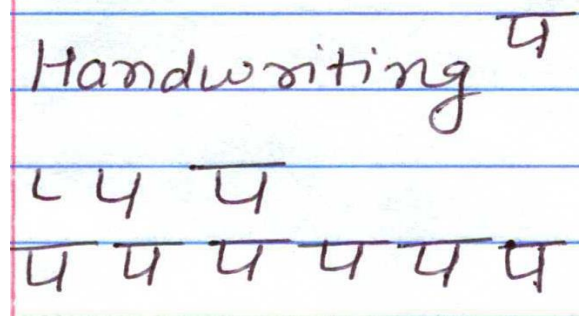 Handwriting प
L प प
प प प प प प